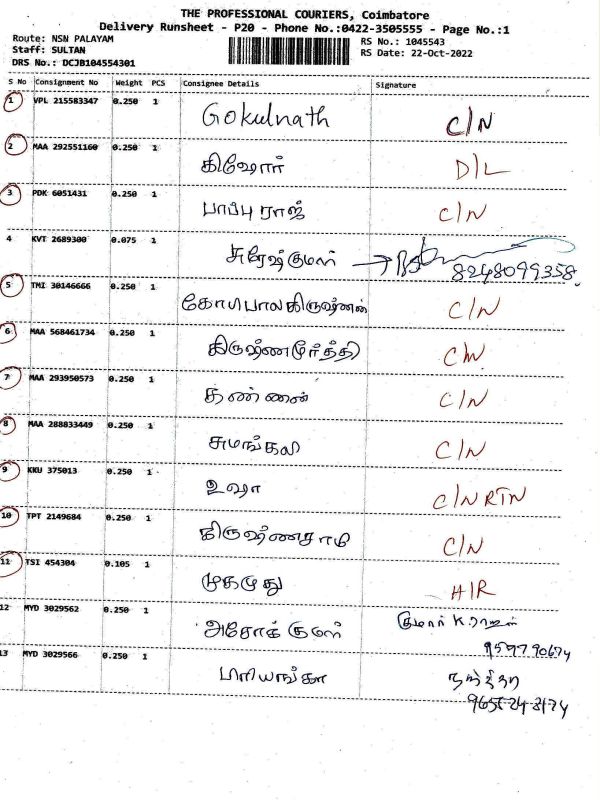 THE PROFESSIONAL COURIERS, Coimbatore
Delivery Runsheet - P20 - Phone No.:0422-3505555 - Page No.:1
Route: NSN PALAYAM RS No.: 1045543
Staff: SULTAN RS Date: 22-Oct-2022
DRS No.: DCJB104554301
S No Consignment No Weight PCS Consignee Details Signature
1 VPL 215583347 0.250 1 Gokulnath C/N
2 MAA 292551160 0.250 1 கிஷோர் D/L
3 PDK 6051431 0.250 1 பாப்பு ராஜ் C/N
4 KVT 2689300 0.075 1 சுரேஷ்குமார் 8248099358
5 TMI 30146666 0.250 1 கோபாலகிருஷ்ணன் C/N
6 MAA 568461734 0.250 1 கிருஷ்ணமூர்த்தி C/N
7 MAA 293950573 0.250 1 கண்ணன் C/N
8 MAA 288833449 0.250 1 சுமங்கலி C/N
9 KKU 375013 0.250 1 உஷா C/N RTN
10 TPT 2149684 0.250 1 கிருஷ்ணசாமி C/N
11 TSI 454304 0.105 1 H/R
12 MYD 3029562 0.250 1 அசோக் குமார் குமார் K
13 MYD 3029566 0.250 1 பிரியங்கா